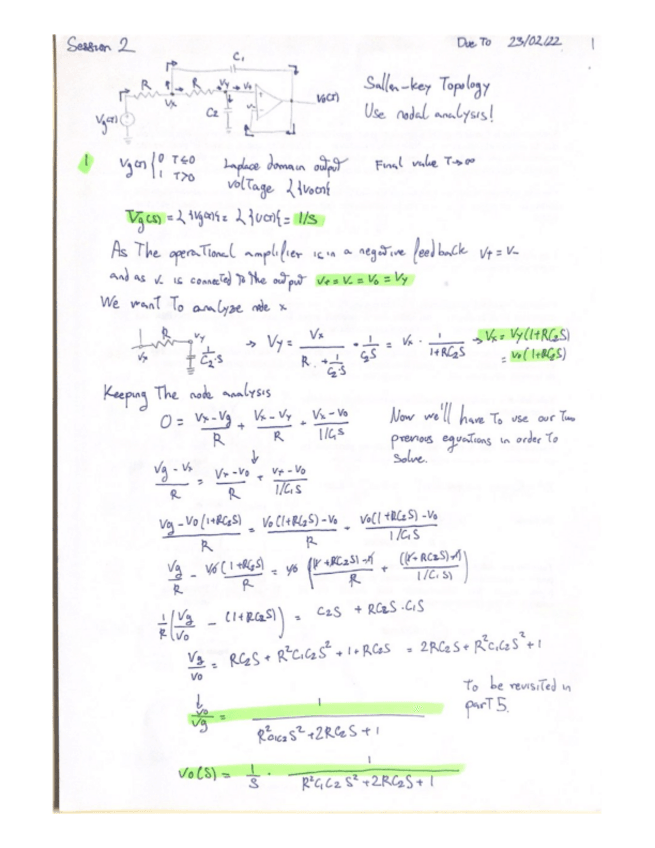 Session 2 Due To 23/02/22 1
C1
R R Vy V+
Vx C2 V- Vo(T)
Vg(T)
Saller-key Topology
Use nodal analysis!
1 Vg(T) { 0 T≤0 Laplace domain output Final value T→∞
1 T>0 voltage L{Vo(T)}
Vg(s) = L{Vg(T)} = L{U(T)} = 1/S
As The operational amplifier is in a negative feedback V+ = V-
and as V- is connected To the output V+ = V- = Vo = Vy
We want To analyze node x
R Vy Vx 1/C2·S → Vy = Vx / (R + 1/C2S) · 1/C2S = Vx · 1/(1+RC2S) → Vx = Vy(1+RC2S)
= Vo(1+RC2S)
Keeping The node analysis
0 = (Vx - Vg)/R + (Vx - Vy)/R + (Vx - Vo)/(1/C1S)
Now we'll have To use our Two
previous equations in order To
solve.
(Vg - Vx)/R = (Vx - Vo)/R + (Vx - Vo)/(1/C1S)
(Vg - Vo(1+RC2S))/R = (Vo(1+RC2S) - Vo)/R + (Vo(1+RC2S) - Vo)/(1/C1S)
Vg/R - Vo(1+RC2S)/R = Vo ((1+RC2S)-1)/R + ((1+RC2S)-1)/(1/C1S)
1/R (Vg/Vo - (1+RC2S)) = C2S + RC2S·C1S
Vg/Vo = RC2S + R²C1C2S² + 1 + RC2S = 2RC2S + R²C1C2S² + 1
To be revisited in
part 5.
Vo/Vg = 1/(R²C1C2S² + 2RC2S + 1)
Vo(S) = 1/S · 1/(R²C1C2S² + 2RC2S + 1)